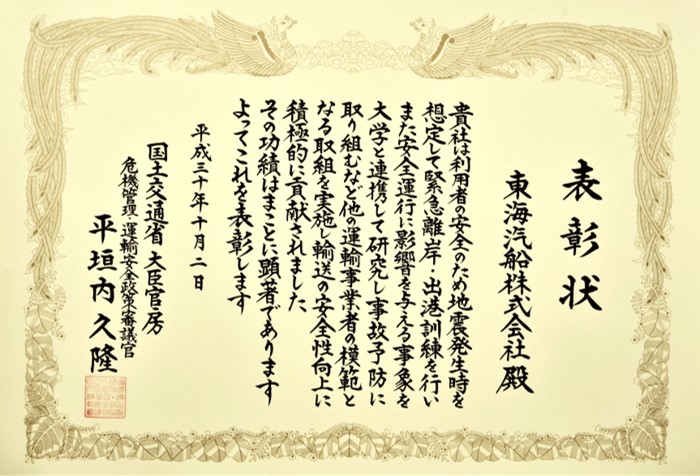 表彰状
東海汽船株式会社殿
貴社は利用者の安全のため地震発生時を
想定して緊急離岸・出港訓練を行い
また安全運行に影響を与える事象を
大学と連携して研究し事故予防に
取り組むなど他の運輸事業者の模範と
なる取組を実施し輸送の安全性向上に
積極的に貢献されました
その功績はまことに顕著であります
よってこれを表彰します
平成三十年十月二日
国土交通省大臣官房
危機管理・運輸安全政策審議官
平垣内久隆